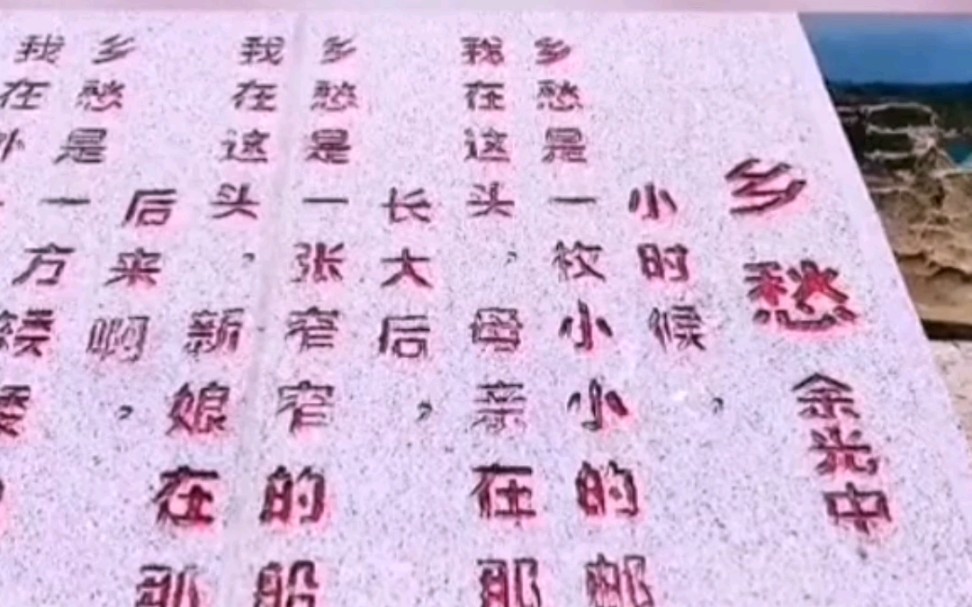 乡愁
余光中
小时候，
乡愁是一枚小小的邮
我在这头，母亲在那
长大后，
乡愁是一张窄窄的船
我在这头，新娘在那
后来啊，
乡愁是一方矮矮
我在外